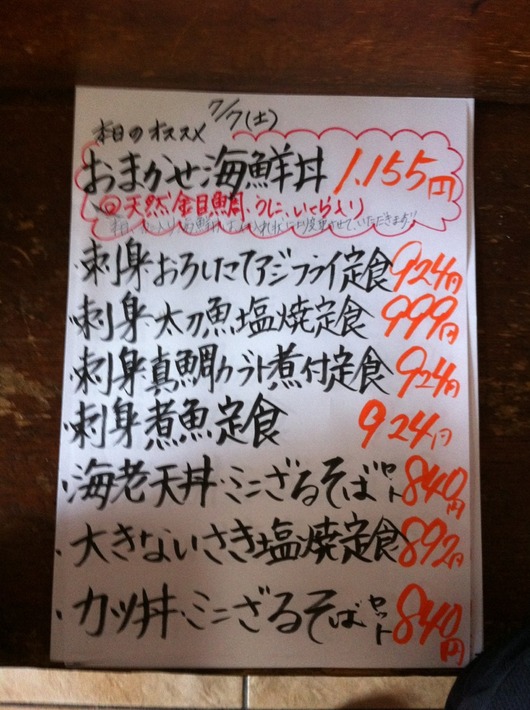 7/7(土)
本日のオススメ
おまかせ海鮮丼 1,155円
@天然金目鯛、うに、いくら入り
・刺身・おろしたてアジフライ定食 924円
・刺身・太刀魚塩焼定食 999円
・刺身・真鯛カブト煮付定食 924円
・刺身・煮魚定食 924円
・海老天丼・ミニざるそばセット 840円
・大きないさき塩焼定食 892円
・カツ丼・ミニざるそばセット 840円